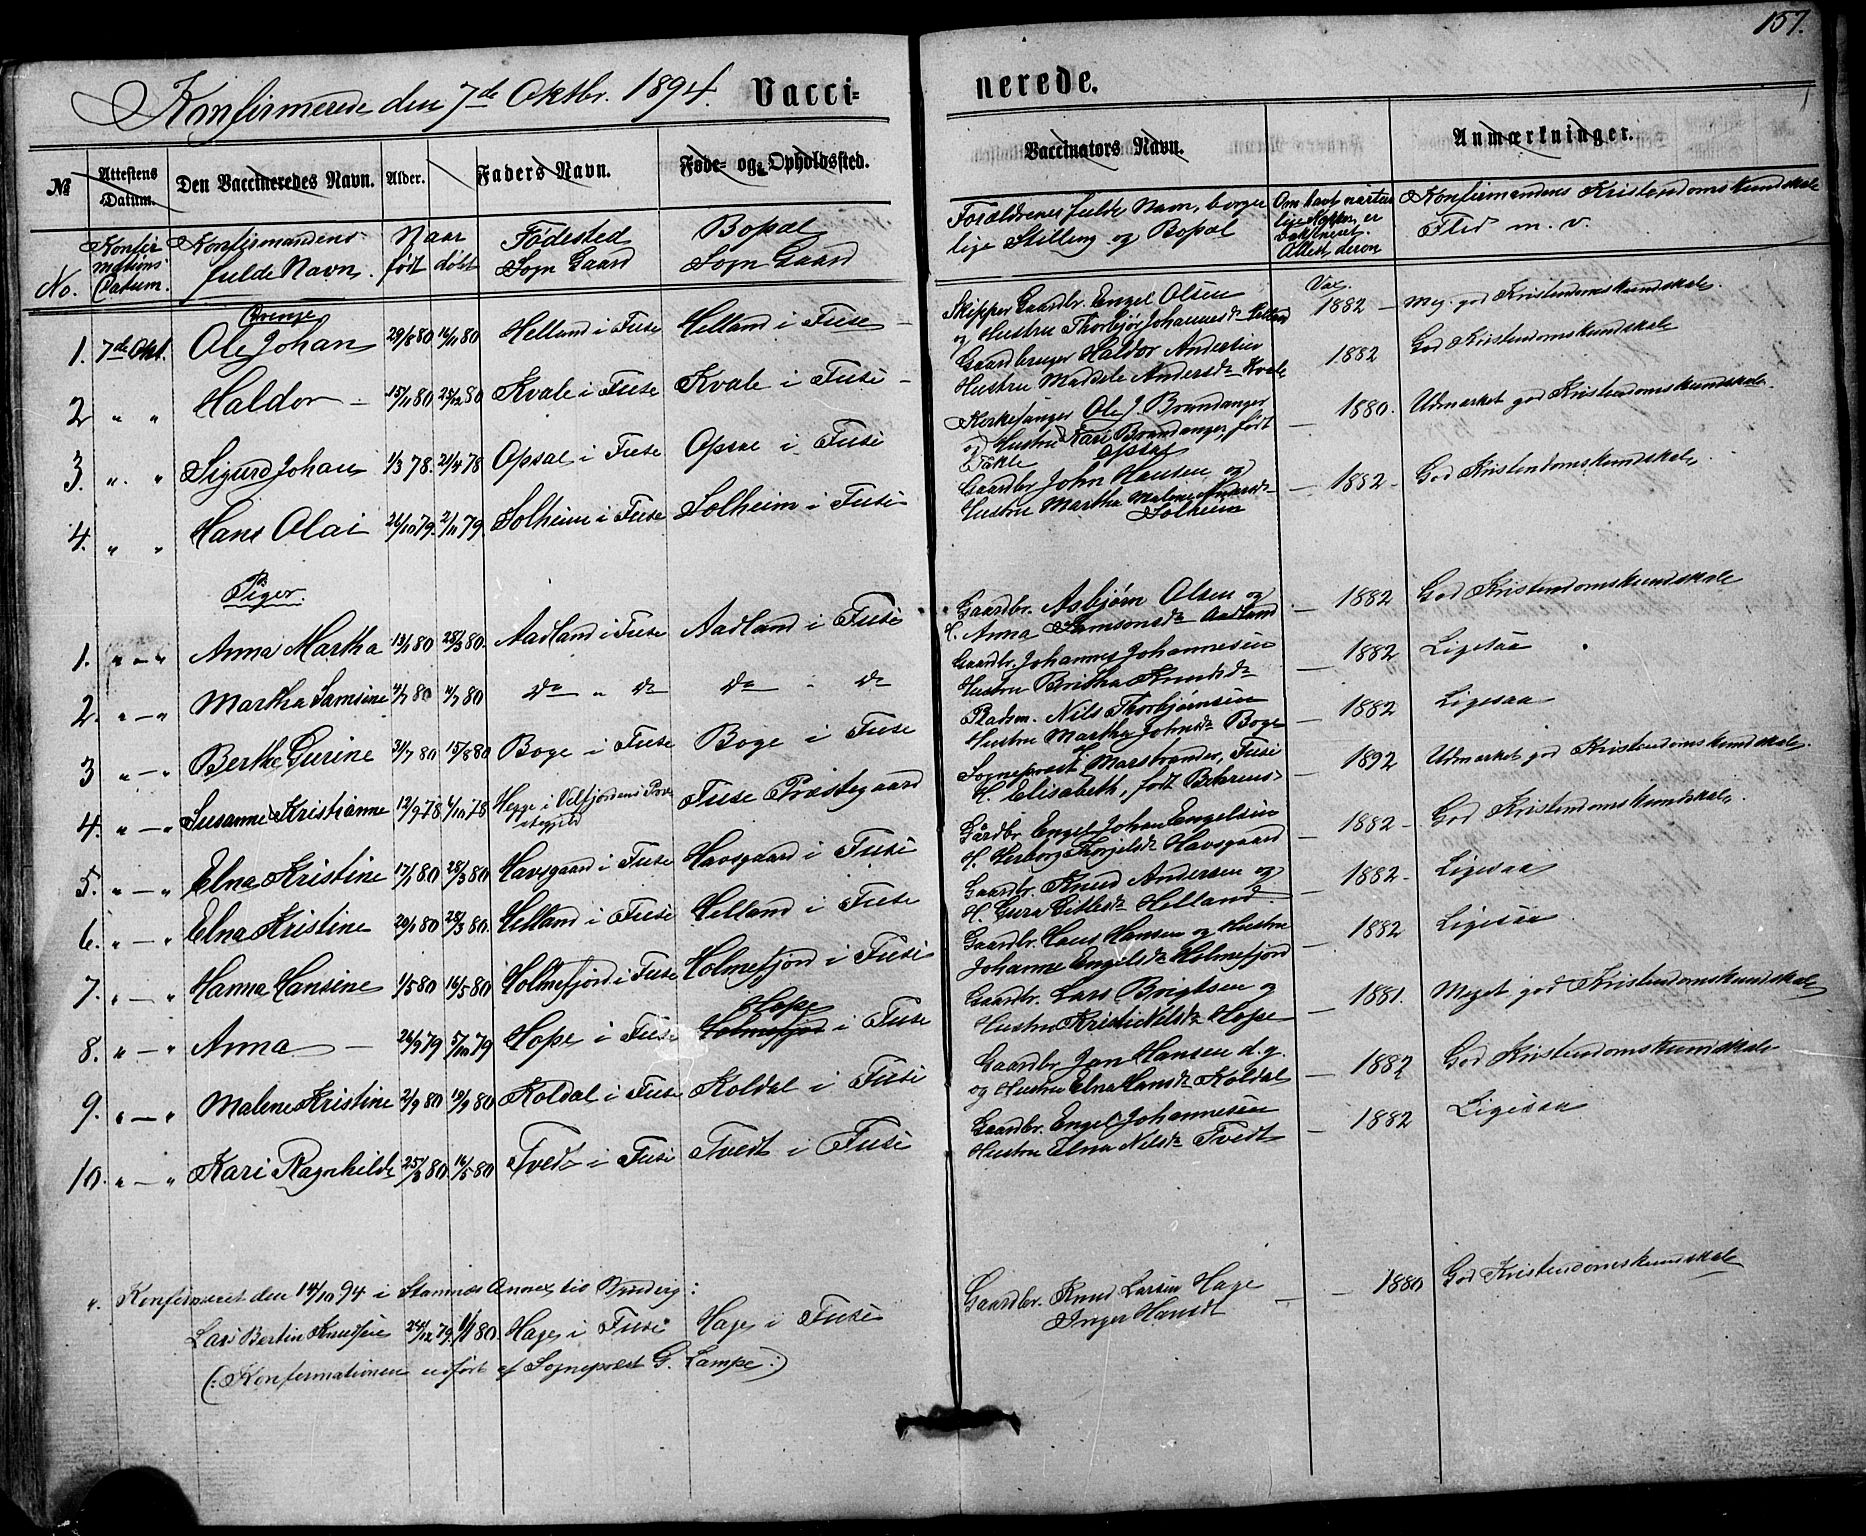 157.
Konfirmerede den 7de Oktbr. 1894. Vacci- nerede.
№ Attestens Datum. Den Vaccineredes Navn. Alder. Faders Navn. Føde- og Opholdssted. Vaccinators Navn. Anmærkninger.
No. Konfirmations Datum. Konfirmandens fulde Navn. Naar født døbt Fødested Sogn Gaard Bopæl Sogn Gaard Forældrenes fulde Navn, borgerlige Stilling og Bopæl Om havt naturlige Kopper, er vakcineret. Attest derom Konfirmandens Kristendomskundskab Flid m. v.
Drenge
Vax.
1. 7de Okt. Ole Johan 29/8 80 14/11 80 Helland i Fuse Helland i Fuse - Skipper Gaardbr. Engel Olsen
og Hustru Thorbjør Johannesdr Helland 1882 - Meg. god Kristendomskundskab.
2 " " Haldor - 15/11 80 25/12 80 Kvale i Fuse Kvale i Fuse - Gaardbruger Haldor Andersen
Hustru Madele Andersdr Kvale 1882 God Kristendomskundskab
3. " " Sigurd Johan 1/3 78. 21/4 78 Opsal i Fuse Opsal i Fuse Kirkesanger Ole J. Brandanger
og Hustru Kari Brandanger, født
Takle Opsal - 1880. Udmærket god Kristendomskundskab.
4. " " Hans Olai 26/10 79. 2/11 79. Solheim i Fuse Solheim i Fuse Gaardbr John Hansen og
Hustru Martha Malene Andersdr
Solheim - 1882 - God Kristendomskundskab.
Piger.
1. " - " Anna Martha 13/1 80 28/3 80. Aadland i Fuse Aadland i Fuse Gaardbr. Asbjørn Olsen og
H. Anna Samsonsdr Aadland - 1882 God Kristendomskundskab
2. " - " Martha Samsine 4/7 80 80 do " do do " do Gaardbr. Johannes Johannesen
Hustru Britha Knudsdr - 1882 Ligesaa
3 " - " Berthe Gurine 31/7 80 15/8 80 Boge i Fuse Boge i Fuse Pladsm. Nils Thorbjørnsen
Hustru Martha Johnsdr Boge - 1882 Ligesaa
4. " - " Susanne Kristianne 12/9 78 6/10 78 Hegge i Velfjordens Præstegjeld Fuse Præstegaard Sognepræst H. Marstrander, Fuse
H. Elisabeth, født Behrens - 1892 Udmærket god Kristendomskundskab.
5. " - " Elna Kristine 17/1 80 28/3 80 Havsgaard i Fuse Havsgaard i Fuse Gårdbr Engel Johan Engelsen
H. Herborg Thorgilsdr Havsgaard - 1882 - God Kristendomskundskab.
6. " - " Elna Kristine 20/1 80 28/3 80. Helland i Fuse Helland i Fuse Gaardbr. Knud Andersen og
H. Guro Gitlesdr Helland. - 1882 - Ligesaa
7. " - " Hanna Hansine 1/5 80 16/5 80 Holmefjord i Fuse Holmefjord i Fuse Gaardbr. Hans Hansen og Hustru
Johanne Engelsdr Holmefjord - 1882 Ligesaa
8. " - " Anna - 26/9 79 5/10 79 Hope i Fuse Holmefjord Hope i Fuse Gaardbr. Lars Brigtsen og
Hustru Kristi Nilsdr Hope - 1881. Meget god Kristendomskundskab
9. " - " Malene Kristine 2/9 80 19/9 80 Koldal i Fuse Koldal i Fuse Gaardbr Jan Hansen d.y.
og Hustru Elna Hansdr Koldal - 1882 God Kristendomskundskab
10. " - " Kari Ragnhilde 25/3 80 16/5 80 Tvedt i Fuse Tvedt i Fuse Gaardbr. Engel Johannesen
Hustru Elna Nilsdr Tvedt - 1882 Ligesaa
". Konfirmeret den 14/10 94 i Stamnæs Annex til :
Lars Bertin Knudsen 24/12 79. 1/1 80 Hage i Fuse Hage i Fuse Gaardbr. Knud Larsen Hage
Inger Hansdt - - 1880 God Kristendomskundskab
(: Konfirmationen udført af Sognepræst G. Lampe :)